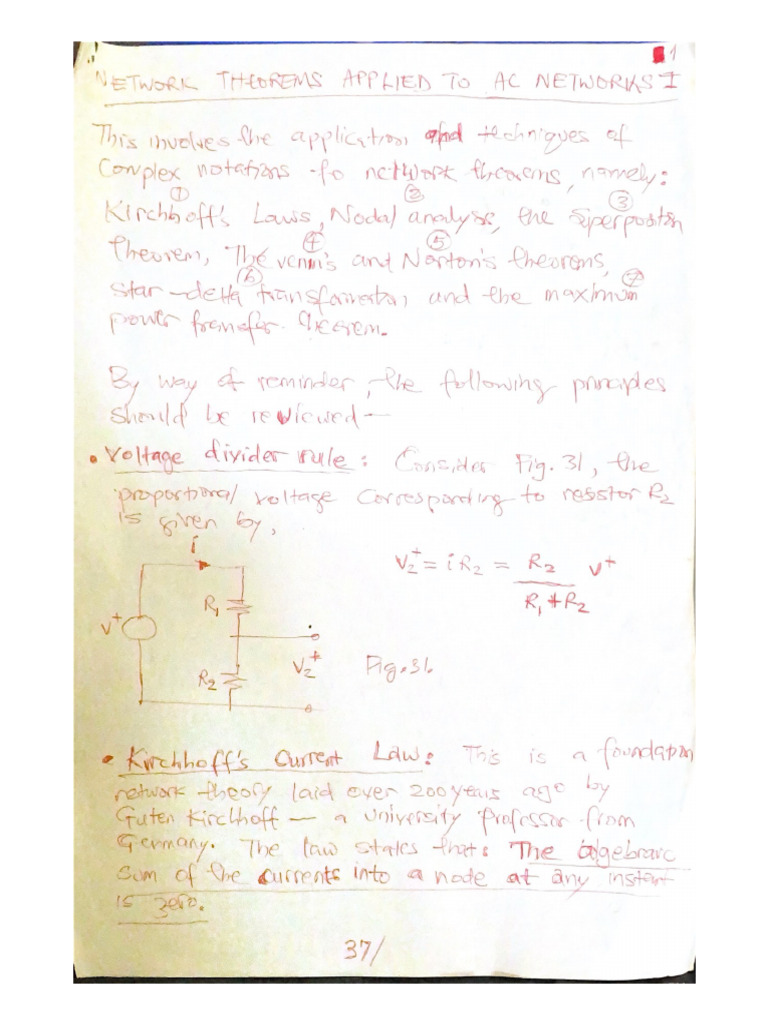 1
NETWORK THEOREMS APPLIED TO AC NETWORKS I
This involves the application and techniques of
Complex notations to network theorems, namely:
① ② ③
Kirchhoff's Laws, Nodal analysis, the Superposition
④ ⑤
theorem, Thevenin's and Norton's theorems,
⑥ ⑦
star-delta transformation, and the maximum
power transfer theorem.
By way of reminder, the following principles
should be reviewed —
• Voltage divider rule: Consider Fig. 31, the
proportional voltage corresponding to resistor R2
is given by,
i
V2+ = iR2 = R2 / (R1 + R2) V+
R1
V+
V2+
R2
Fig. 31.
• Kirchhoff's Current Law: This is a foundation
network theory laid over 200 years ago by
Guten Kirchhoff — a University Professor from
Germany. The law states that: The algebraic
sum of the currents into a node at any instant
is zero.
37/